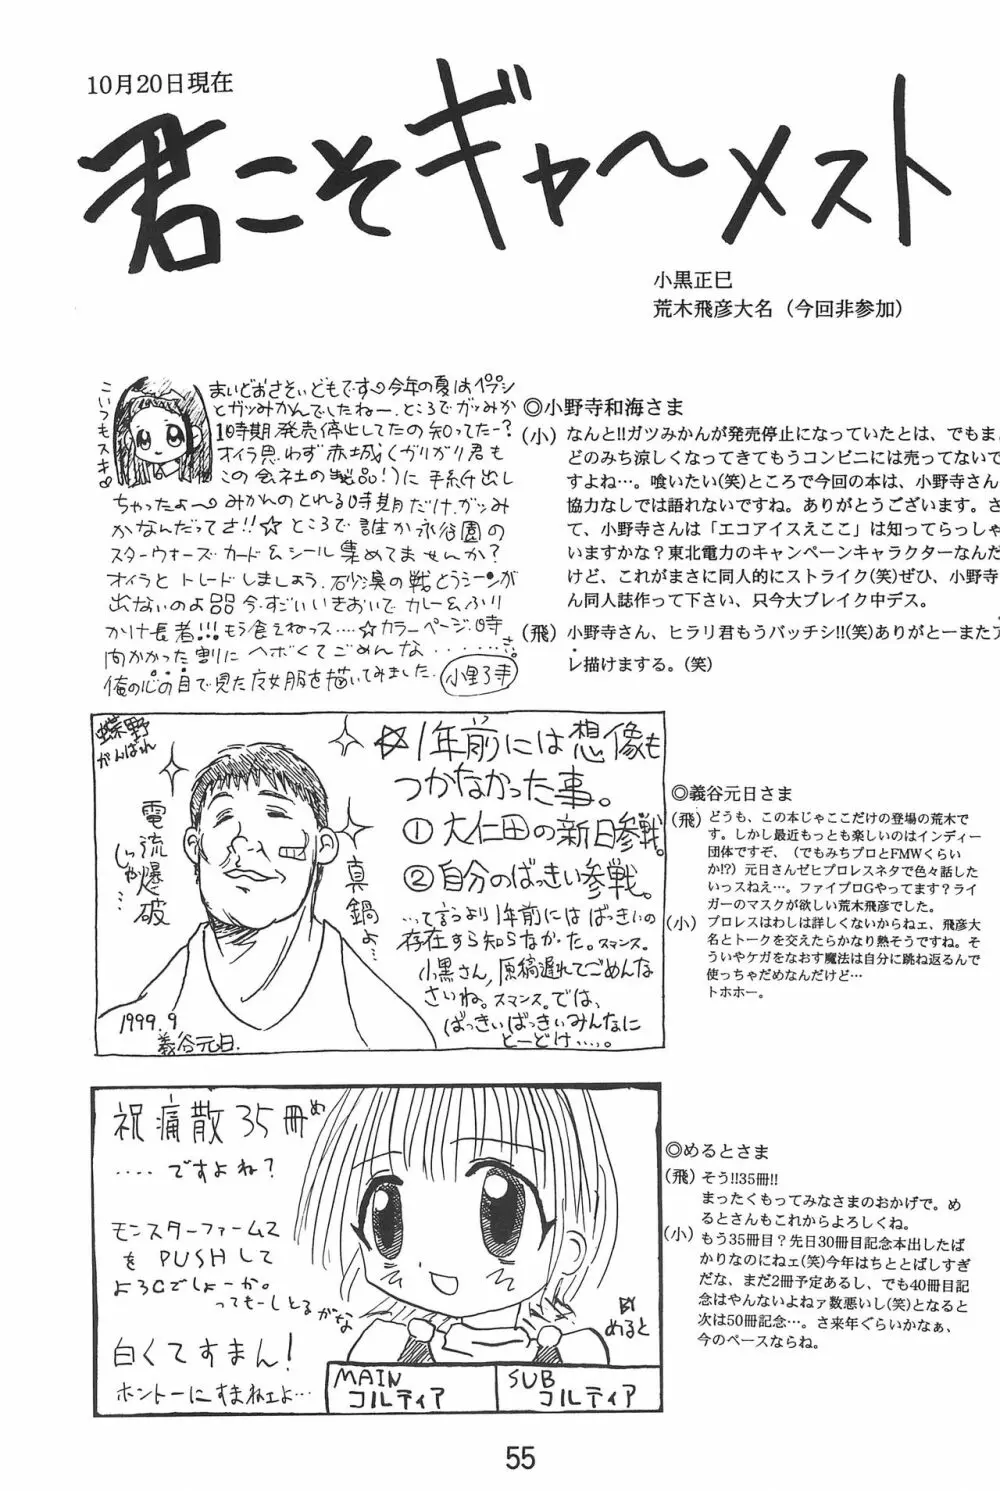 10月20日現在
君こそギャ〜メスト
小黒正巳
荒木飛彦大名（今回非参加）
こいつもスキ♡
まいどおさそいどもです♡今年の夏はペプシ
とガツみかんでしたねー、ところでガツみか
1時期発売停止してたの知ってたー?
オイラ思わず赤城(ガリガリ君も
この会社の製品!)に手紙出し
ちゃったよ〜みかんのとれる時期だけガツみ
かなんだってさ!!☆ところで誰か永谷園の
スターウォーズカード&シール集めてませんか?
オイラとトレードしましょう、砂漠の戦とうシーンが
出ないのよ 今すごいいきおいでカレー&ふり
かけ長者!!!もう食えねっス....☆カラーページ、時
間かかった割にヘボくてごめんな.......さ。
俺の心の目で見た女服を描いてみました。
小野寺
◎小野寺和海さま
（小）なんと!!ガツみかんが発売停止になっていたとは、でもま、
どのみち涼しくなってきてもうコンビニには売ってないで
すよね…。喰いたい(笑)ところで今回の本は、小野寺さん
協力なしでは語れないですね。ありがとうございます。さ
て、小野寺さんは「エコアイスえここ」は知ってらっしゃ
いますかな？東北電力のキャンペーンキャラクターなんだ
けど、これがまさに同人的にストライク(笑)ぜひ、小野寺
ん同人誌作って下さい、只今大ブレイク中デス。
（飛）小野寺さん、ヒラリ君もうバッチシ!!(笑)ありがとーまたア
レ描けまする。(笑)
蝶野
がんばれ
電流爆破
しっかし
真鍋よ…
1999.9
義谷元日.
☆1年前には想像も
つかなかった事。
① 大仁田の新日参戦。
② 自分のばっきい参戦。
...って言うより1年前にはばっきいの
存在すら知らなかった。スマンス。
小黒さん,原稿遅れてごめんな
さいね。スマンス。では、
ばっきいばっきいみんなに
とーどけ....。
◎義谷元日さま
（飛）どうも、この本じゃここだけの登場の荒木で
す。しかし最近もっとも楽しいのはインディー
団体ですぞ、（でもみちプロとFMWくらい
か!?）元日さんゼヒプロレスネタで色々話した
いっスねえ…。ファイプロGやってます？ライ
ガーのマスクが欲しい荒木飛彦でした。
（小）プロレスはわしは詳しくないからねェ、飛彦大
名とトークを交えたらかなり熱そうですね。そ
ういやケガをなおす魔法は自分に跳ね返るんで
使っちゃだめなんだけど…
トホホー。
祝痛散35冊め
....ですよね?
モンスターファーム2
をPUSHして
よろCでしょーか。
ってもーしとるがな
白くてすまん!
ホントーにすまねェよ…
BY
めると
MAIN
コルティア
SUB
コルティア
◎めるとさま
（飛）そう!!35冊!!
まったくもってみなさまのおかげで。め
るとさんもこれからよろしくね。
（小）もう35冊目？先日30冊目記念本出したば
かりなのにねェ(笑)今年はちととばしすぎ
だな、まだ2冊予定あるし、でも40冊目記
念はやんないよねァ数悪いし(笑)となると
次は50冊記念…。さ来年ぐらいかなぁ、
今のペースならね。
55